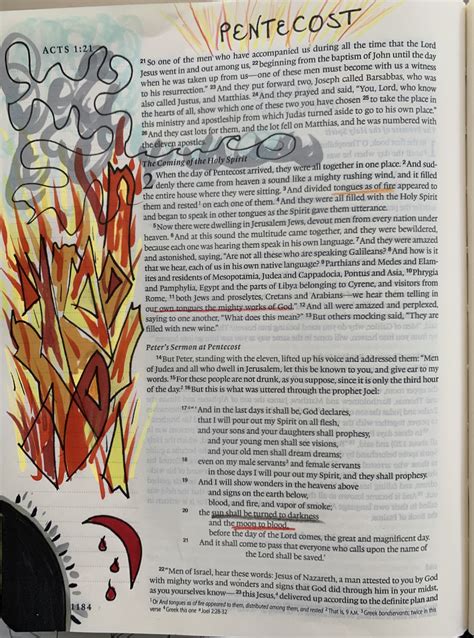 PENTECOST
ACTS 1:21
21 So one of the men who have accompanied us during all the time that the Lord
Jesus went in and out among us, 22 beginning from the baptism of John until the day
when he was taken up from us—one of these men must become with us a witness
to his resurrection." 23 And they put forward two, Joseph called Barsabbas, who was
also called Justus, and Matthias. 24 And they prayed and said, "You, Lord, who know
the hearts of all, show which one of these two you have chosen 25 to take the place in
this ministry and apostleship from which Judas turned aside to go to his own place."
26 And they cast lots for them, and the lot fell on Matthias, and he was numbered with
the eleven apostles.
The Coming of the Holy Spirit
2 When the day of Pentecost arrived, they were all together in one place. 2 And sud-
denly there came from heaven a sound like a mighty rushing wind, and it filled
the entire house where they were sitting. 3 And divided tongues as of fire appeared to
them and rested1 on each one of them. 4 And they were all filled with the Holy Spirit
and began to speak in other tongues as the Spirit gave them utterance.
5 Now there were dwelling in Jerusalem Jews, devout men from every nation under
heaven. 6 And at this sound the multitude came together, and they were bewildered,
because each one was hearing them speak in his own language. 7 And they were amazed
and astonished, saying, "Are not all these who are speaking Galileans? 8 And how is it
that we hear, each of us in his own native language? 9 Parthians and Medes and Elam-
ites and residents of Mesopotamia, Judea and Cappadocia, Pontus and Asia, 10 Phrygia
and Pamphylia, Egypt and the parts of Libya belonging to Cyrene, and visitors from
Rome, 11 both Jews and proselytes, Cretans and Arabians—we hear them telling in
our own tongues the mighty works of God." 12 And all were amazed and perplexed,
saying to one another, "What does this mean?" 13 But others mocking said, "They are
filled with new wine."
Peter's Sermon at Pentecost
14 But Peter, standing with the eleven, lifted up his voice and addressed them: "Men
of Judea and all who dwell in Jerusalem, let this be known to you, and give ear to my
words. 15 For these people are not drunk, as you suppose, since it is only the third hour
of the day.2 16 But this is what was uttered through the prophet Joel:
17 "'And in the last days it shall be, God declares,
that I will pour out my Spirit on all flesh,
and your sons and your daughters shall prophesy,
and your young men shall see visions,
and your old men shall dream dreams;
18 even on my male servants3 and female servants
in those days I will pour out my Spirit, and they shall prophesy.
19 And I will show wonders in the heavens above
and signs on the earth below,
blood, and fire, and vapor of smoke;
20 the sun shall be turned to darkness
and the moon to blood,
before the day of the Lord comes, the great and magnificent day.
21 And it shall come to pass that everyone who calls upon the name of
the Lord shall be saved.'
22 "Men of Israel, hear these words: Jesus of Nazareth, a man attested to you by God
with mighty works and wonders and signs that God did through him in your midst,
as you yourselves know— 23 this Jesus,4 delivered up according to the definite plan and
1 Or And tongues as of fire appeared to them, distributed among them, and rested 2 That is, 9 A.M. 3 Greek bondservants; twice in this
verse 4 Greek this one
1184